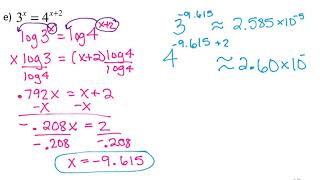 e) 3^x = 4^(x+2)
log 3^(x) = log 4^(x+2)
x log 3 = (x+2) log 4
log 4 log 4
.792x = x + 2
-x -x
-.208x = 2
-.208 -.208
x = -9.615
3^-9.615 ≈ 2.585 × 10^-5
4^-9.615 + 2 ≈ 2.60 × 10^-